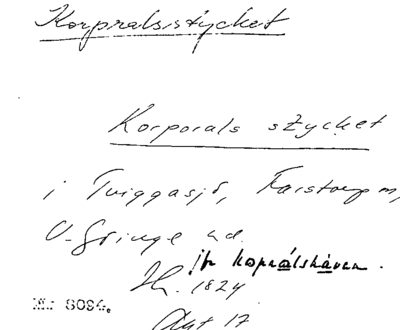 Korpralsstycket
Korporals stycket
i Tviggasjö, Farstorp m,
V. Göinge hd.
jfr kopralskåven.
Jh. 1824
Akt 17
8094.